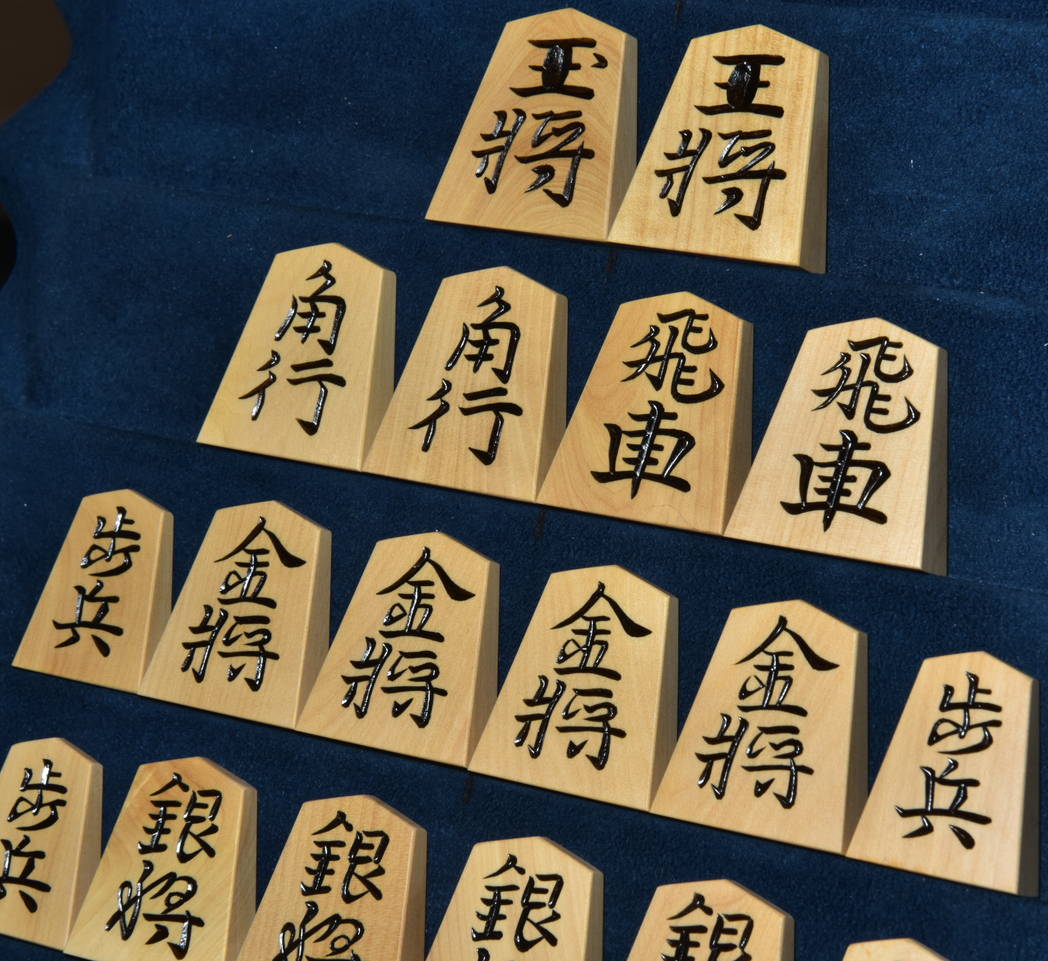 玉將
王將
角行
角行
飛車
飛車
歩兵
金將
金將
金將
金將
歩兵
歩兵
銀將
銀將
銀
銀